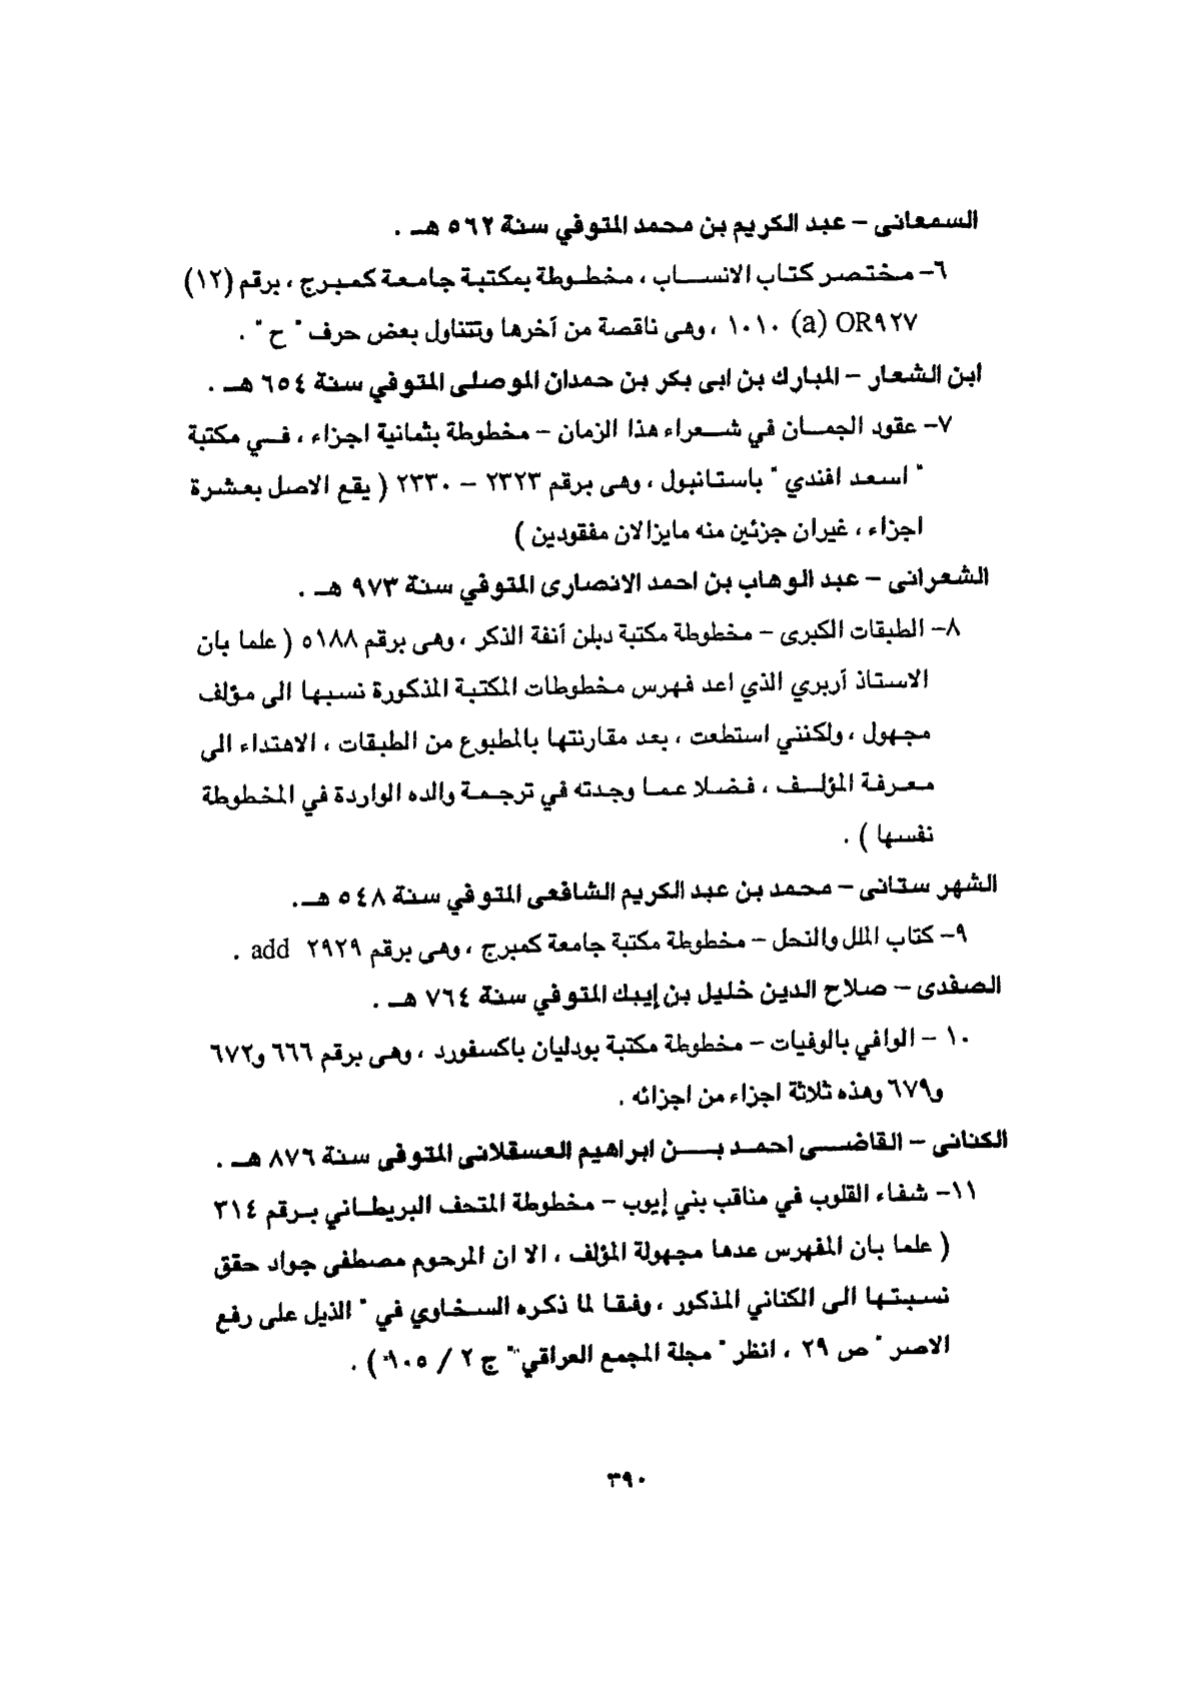 السمعانى – عبد الكريم بن محمد المتوفي سنة ٥٦٢ هـ .
٦– مختصر كتاب الانساب ، مخطوطة بمكتبة جامعة كمبرج ، برقم (١٢)
OR٩٢٧ (a) ١٠١٠ ، وهى ناقصة من آخرها وتتناول بعض حرف " ح " .
ابن الشعار – المبارك بن ابى بكر بن حمدان الموصلى المتوفي سنة ٦٥٤ هـ .
٧– عقود الجمان في شعراء هذا الزمان – مخطوطة بثمانية اجزاء ، في مكتبة
" اسعد افندي " باستانبول ، وهى برقم ٢٣٢٣ – ٢٣٣٠ ( يقع الاصل بعشرة
اجزاء ، غيران جزئين منه مايزالان مفقودين )
الشعرانى – عبد الوهاب بن احمد الانصارى المتوفي سنة ٩٧٣ هـ .
٨– الطبقات الكبرى – مخطوطة مكتبة دبلن آنفة الذكر ، وهى برقم ٥١٨٨ ( علما بان
الاستاذ آربري الذي اعد فهرس مخطوطات المكتبة المذكورة نسبها الى مؤلف
مجهول ، ولكنني استطعت ، بعد مقارنتها بالمطبوع من الطبقات ، الاهتداء الى
معرفة المؤلف ، فضلا عما وجدته في ترجمة والده الواردة في المخطوطة
نفسها ) .
الشهر ستانى – محمد بن عبد الكريم الشافعى المتوفي سنة ٥٤٨ هـ .
٩– كتاب الملل والنحل – مخطوطة مكتبة جامعة كمبرج ، وهى برقم ٢٩٢٩ add .
الصفدى – صلاح الدين خليل بن إيبك المتوفي سنة ٧٦٤ هـ .
١٠ – الوافي بالوفيات – مخطوطة مكتبة بودليان باكسفورد ، وهى برقم ٦٦٦ و٦٧٢
و٦٧٩ وهذه ثلاثة اجزاء من اجزائه .
الكنانى – القاضى احمد بن ابراهيم العسقلانى المتوفى سنة ٨٧٦ هـ .
١١– شفاء القلوب في مناقب بني إيوب – مخطوطة المتحف البريطاني برقم ٣١٤
( علما بان المفهرس عدها مجهولة المؤلف ، الا ان المرحوم مصطفى جواد حقق
نسبتها الى الكناني المذكور ، وفقا لما ذكره السخاوي في " الذيل على رفع
الاصر " ص ٢٩ ، انظر " مجلة المجمع العراقي " ج ٢ / ١٠٥ ) .
٣٩٠